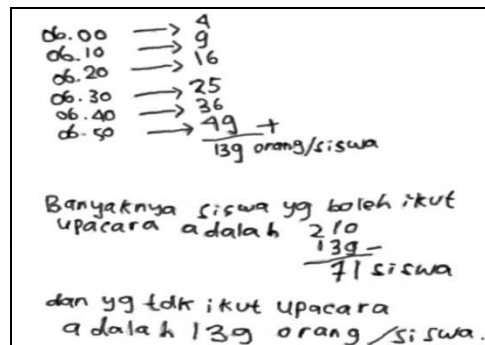 06.00 → 4
06.10 → 9
06.20 → 16
06.30 → 25
06.40 → 36
06.50 → 49 +
139 orang/siswa
Banyaknya siswa yg boleh ikut
upacara adalah 210
139 -
71 siswa
dan yg tdk ikut upacara
adalah 139 orang/siswa.